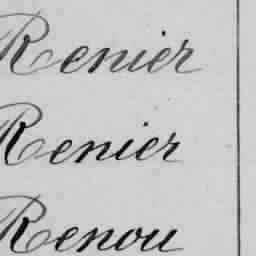 Renier
Renier
Renou